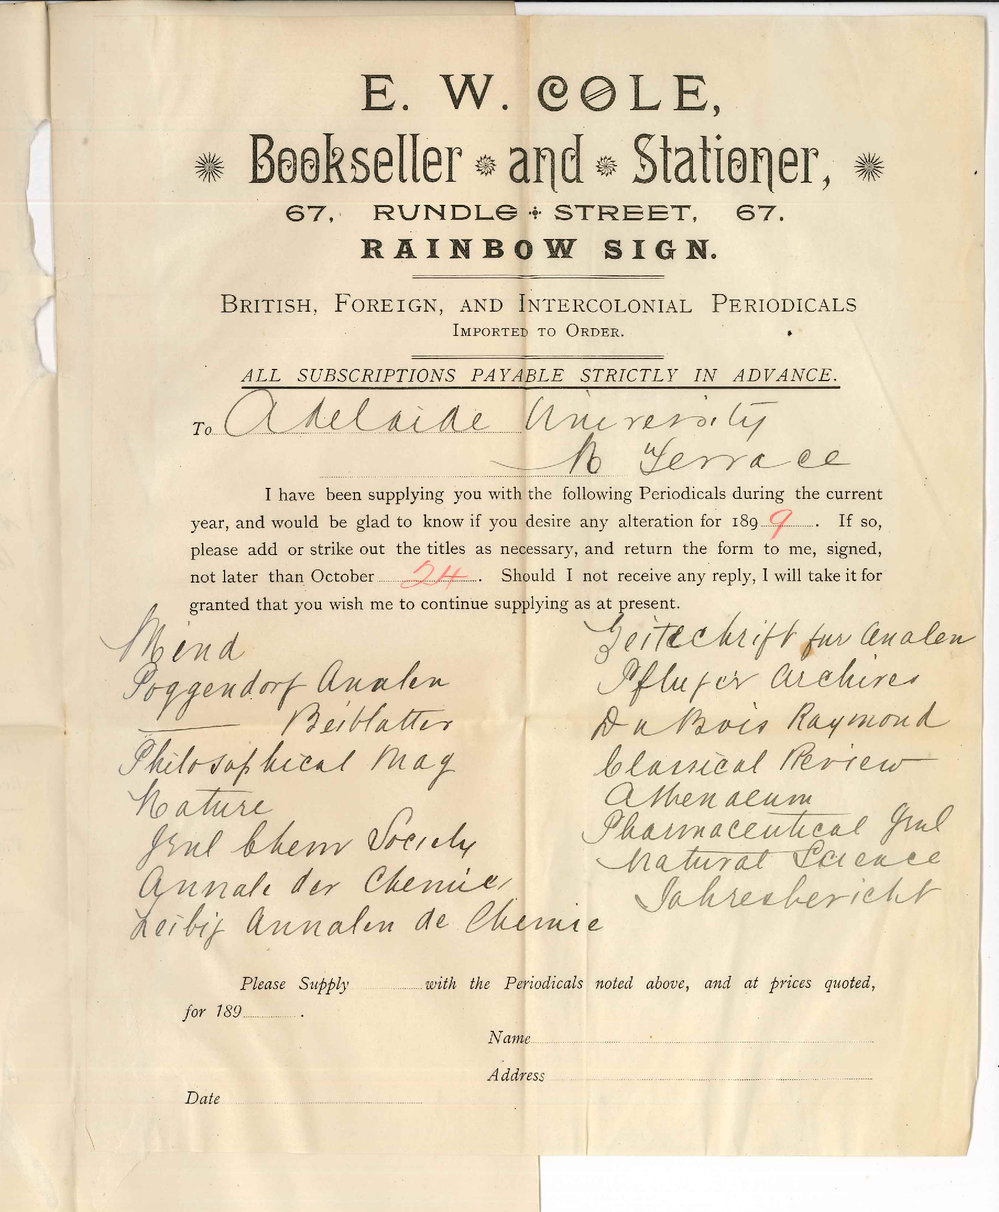 E. W. COLE,
Bookseller and Stationer,
67, RUNDLE STREET, 67.
RAINBOW SIGN.
BRITISH, FOREIGN, AND INTERCOLONIAL PERIODICALS
IMPORTED TO ORDER.
ALL SUBSCRIPTIONS PAYABLE STRICTLY IN ADVANCE.
To Adelaide University
N Terrace
I have been supplying you with the following Periodicals during the current
year, and would be glad to know if you desire any alteration for 1899. If so,
please add or strike out the titles as necessary, and return the form to me, signed,
not later than October 24. Should I not receive any reply, I will take it for
granted that you wish me to continue supplying as at present.
Mind
Poggendorf Analen
—— Beiblatter
Philosophical Mag
Nature
Jrnl Chem Society
Annale der Chemie
Leibig Annalen de Chemie
Zeitschrift fur Analen
Pfluger Archives
Du Bois Raymond
Classical Review
Athenaeum
Pharmaceutical Jrnl
Natural Science
Jahresbericht
Please Supply with the Periodicals noted above, and at prices quoted,
for 189 .
Name
Address
Date